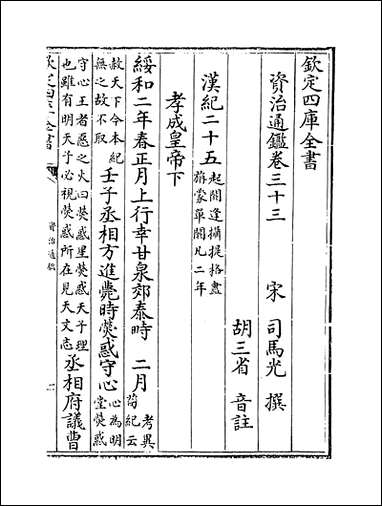 欽定四庫全書
資治通鑑卷三十三 宋 司馬光 撰
胡三省 音註
漢紀二十五 起閼逢攝提格盡
旃蒙單閼凡二年
孝成皇帝下
綏和二年春正月上行幸甘泉郊泰畤 二月 考異
荀紀云
赦天下今本紀
無之故不取 壬子丞相方進薨時熒惑守心 心為明
堂熒惑
守心王者惡之火曰熒惑星熒惑天子理
也雖有明天子必視熒惑所在見天文志 丞相府議曹
欽定四庫全書
資治通鑑